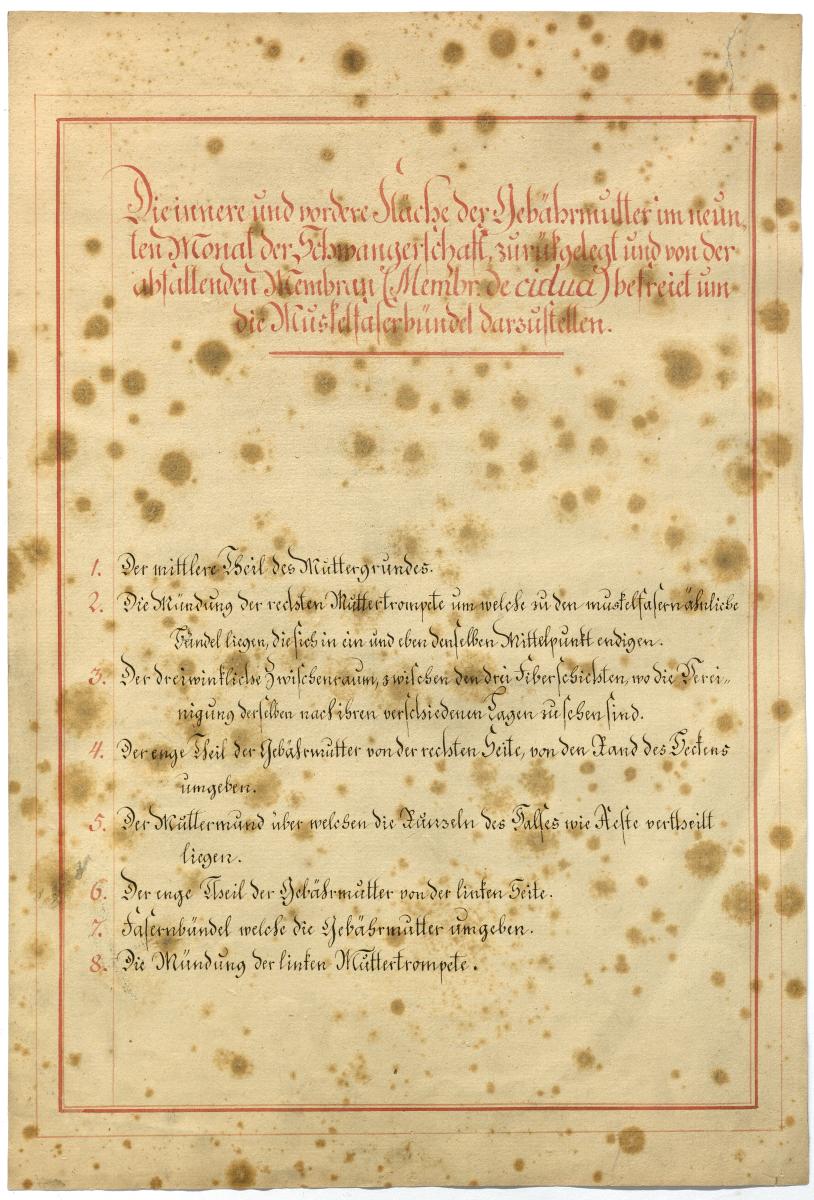 Die innere und vordere Fläche der Gebährmutter im neun,
ten Monat der Schwangerschaft, zurükgelegt und von der
abfallenden Membran (Membr. decidua) befreiet um
die Muskelfaserbündel darzustellen.
1. Der mittlere Theil des Muttergrundes.
2. Die Mündung der rechten Muttertrompete um welche zu den muskelfasern ähnliche
Bündel liegen, die sich in ein und eben denselben Mittelpunkt endigen.
3. Der dreiwinkliche Zwischenraum, zwischen den drei Fiberschichten, wo die Verei=
nigung derselben nach ihren verschiedenen Lagen zu sehen sind.
4. Der enge Theil der Gebährmutter von der rechten Seite, von den Rand des Beckens
umgeben.
5. Der Muttermund über welchen die Runzeln des Halses wie Aeste vertheilt
liegen.
6. Der enge Theil der Gebährmutter von der linken Seite.
7. Fasernbündel welche die Gebährmutter umgeben.
8. Die Mündung der linken Muttertrompete.